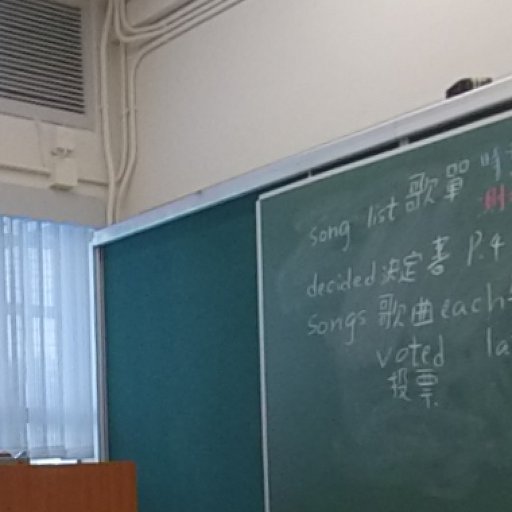 song list 歌單 時
decided 決定書 P.4
songs 歌曲 each
voted la
投票